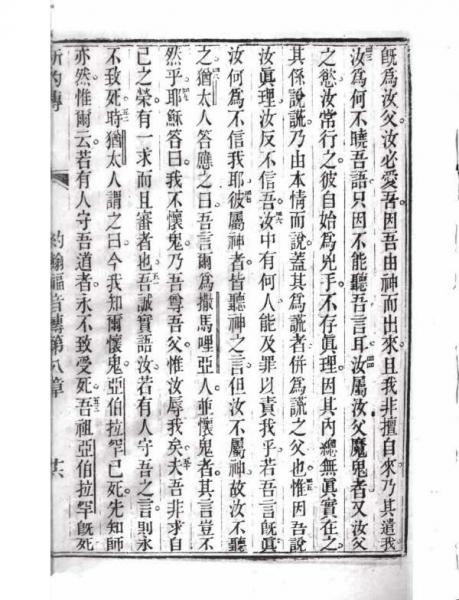 既為汝父汝必愛吾因吾由神而出來且我非擅自來乃其遣我
汝為何不曉吾語只因不能聽吾言耳汝屬汝父魔鬼者又汝父
之慾汝常行之彼自始為兇手不存眞理因其內總無眞實在之
其係說謊乃由本情而說蓋其為謊者併為謊之父也惟因吾說
汝眞理汝反不信吾汝中有何人能及罪以責我乎若吾言既眞
汝何為不信我耶彼屬神者皆聽神之言但汝不屬神故汝不聽
之猶太人答應之曰吾言爾為撒馬哩亞人並懷鬼者其言豈不
然乎耶穌答曰我不懷鬼乃吾尊吾父惟汝辱我矣夫吾非求自
己之榮有一求而且審者也吾誠實語汝若有人守吾之言則永
不致死時猶太人謂之曰今我知爾懷鬼亞伯拉罕已死先知師
亦然惟爾云若有人守吾道者永不致受死吾祖亞伯拉罕既死
約翰福音傳第八章 廿六